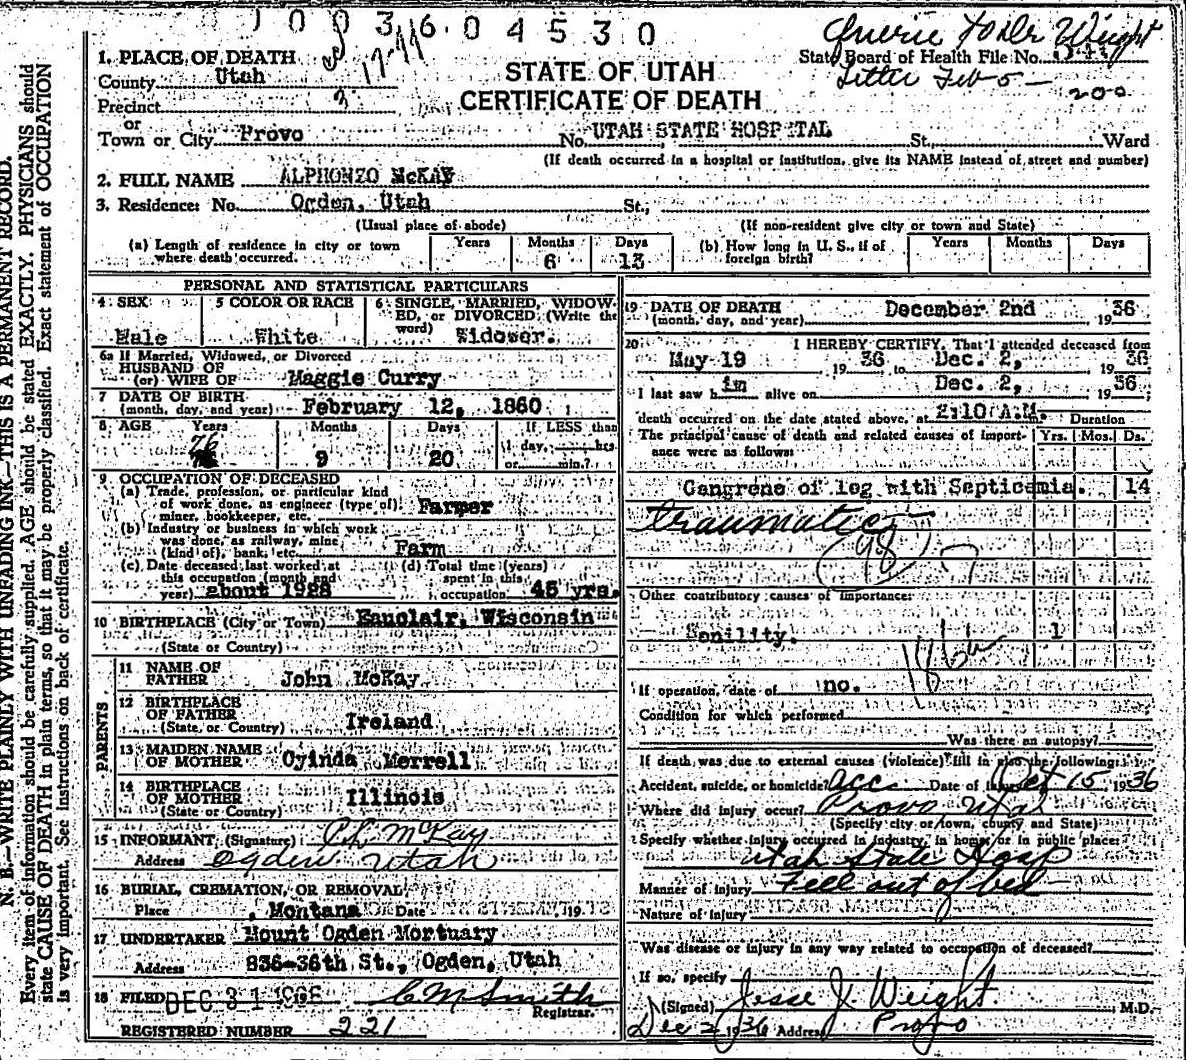 1003604530
STATE OF UTAH
CERTIFICATE OF DEATH
State Board of Health File No.
Letter Feb 5 —
200
1. PLACE OF DEATH
County Utah
Precinct 3
or
Town or City Provo No. UTAH STATE HOSPITAL St., Ward
(If death occurred in a hospital or institution, give its NAME instead of street and number)
2. FULL NAME ALPHONZO McKAY
3. Residence: No. Ogden, Utah St.,
(Usual place of abode) (If non-resident give city or town and State)
(a) Length of residence in city or town where death occurred. Years Months 6 Days 13
(b) How long in U. S., if of foreign birth? Years Months Days
PERSONAL AND STATISTICAL PARTICULARS
4 SEX Male
5 COLOR OR RACE White
6 SINGLE, MARRIED, WIDOWED, or DIVORCED (Write the word) Widower.
6a If Married, Widowed, or Divorced
HUSBAND OF
(or) WIFE OF Maggie Curry
7 DATE OF BIRTH
(month, day, and year) February 12, 1860
8 AGE Years 76 Months 9 Days 20 If LESS than 1 day, hrs or min.?
9 OCCUPATION OF DECEASED
(a) Trade, profession, or particular kind
of work done, as engineer (type of), Farmer
miner, bookkeeper, etc.
(b) Industry or business in which work
was done, as railway, mine
(kind of), bank, etc. Farm
(c) Date deceased last worked at
this occupation (month and
year) about 1928
(d) Total time (years)
spent in this
occupation 45 yrs.
10 BIRTHPLACE (City or Town) Eauclair, Wisconsin
(State or Country)
PARENTS
11 NAME OF
FATHER John McKay
12 BIRTHPLACE
OF FATHER
(State or Country) Ireland
13 MAIDEN NAME
OF MOTHER Cyinda Merrell
14 BIRTHPLACE
OF MOTHER Illinois
(State or Country)
15 INFORMANT (Signature) McKay
Address Ogden Utah
16 BURIAL, CREMATION, OR REMOVAL
Place , Montana Date 19
17 UNDERTAKER Mount Ogden Mortuary
Address 836-36th St., Ogden, Utah
18 FILED DEC 31 1936 C M Smith
Registrar.
REGISTERED NUMBER 221
19 DATE OF DEATH December 2nd 1936
(month, day, and year)
20 I HEREBY CERTIFY, That I attended deceased from
May 19 1936 to Dec. 2, 1936
I last saw him alive on Dec. 2, 1936
death occurred on the date stated above, at 2:10 A.M. Duration
The principal cause of death and related causes of importance were as follows: Yrs. Mos. Ds.
Gangrene of leg with Septicemia. 14
traumatic
Other contributory causes of importance:
Senility. 1
If operation, date of no.
Condition for which performed
Was there an autopsy?
If death was due to external causes (violence) fill in also the following:
Accident, suicide, or homicide? Acc Date of injury Oct 15 1936
Where did injury occur? Provo Utah
(Specify city or town, county and State)
Specify whether injury occurred in industry, in home, or in public place:
Utah State Hosp
Manner of injury Fell out of bed
Nature of injury
Was disease or injury in any way related to occupation of deceased?
If so, specify
(Signed) Jesse J. Weight M.D.
Dec 2 1936 Address Provo
N. B.—WRITE PLAINLY WITH UNFADING INK—THIS IS A PERMANENT RECORD.
Every item of information should be carefully supplied. AGE should be stated EXACTLY. PHYSICIANS should
state CAUSE OF DEATH in plain terms, so that it may be properly classified. Exact statement of OCCUPATION
is very important. See instructions on back of certificate.